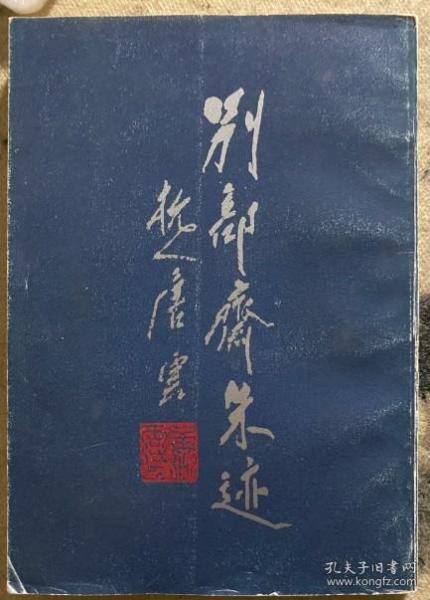 别部齋朱迹
杭人唐雲
孔夫子旧书网
www.kongfz.com